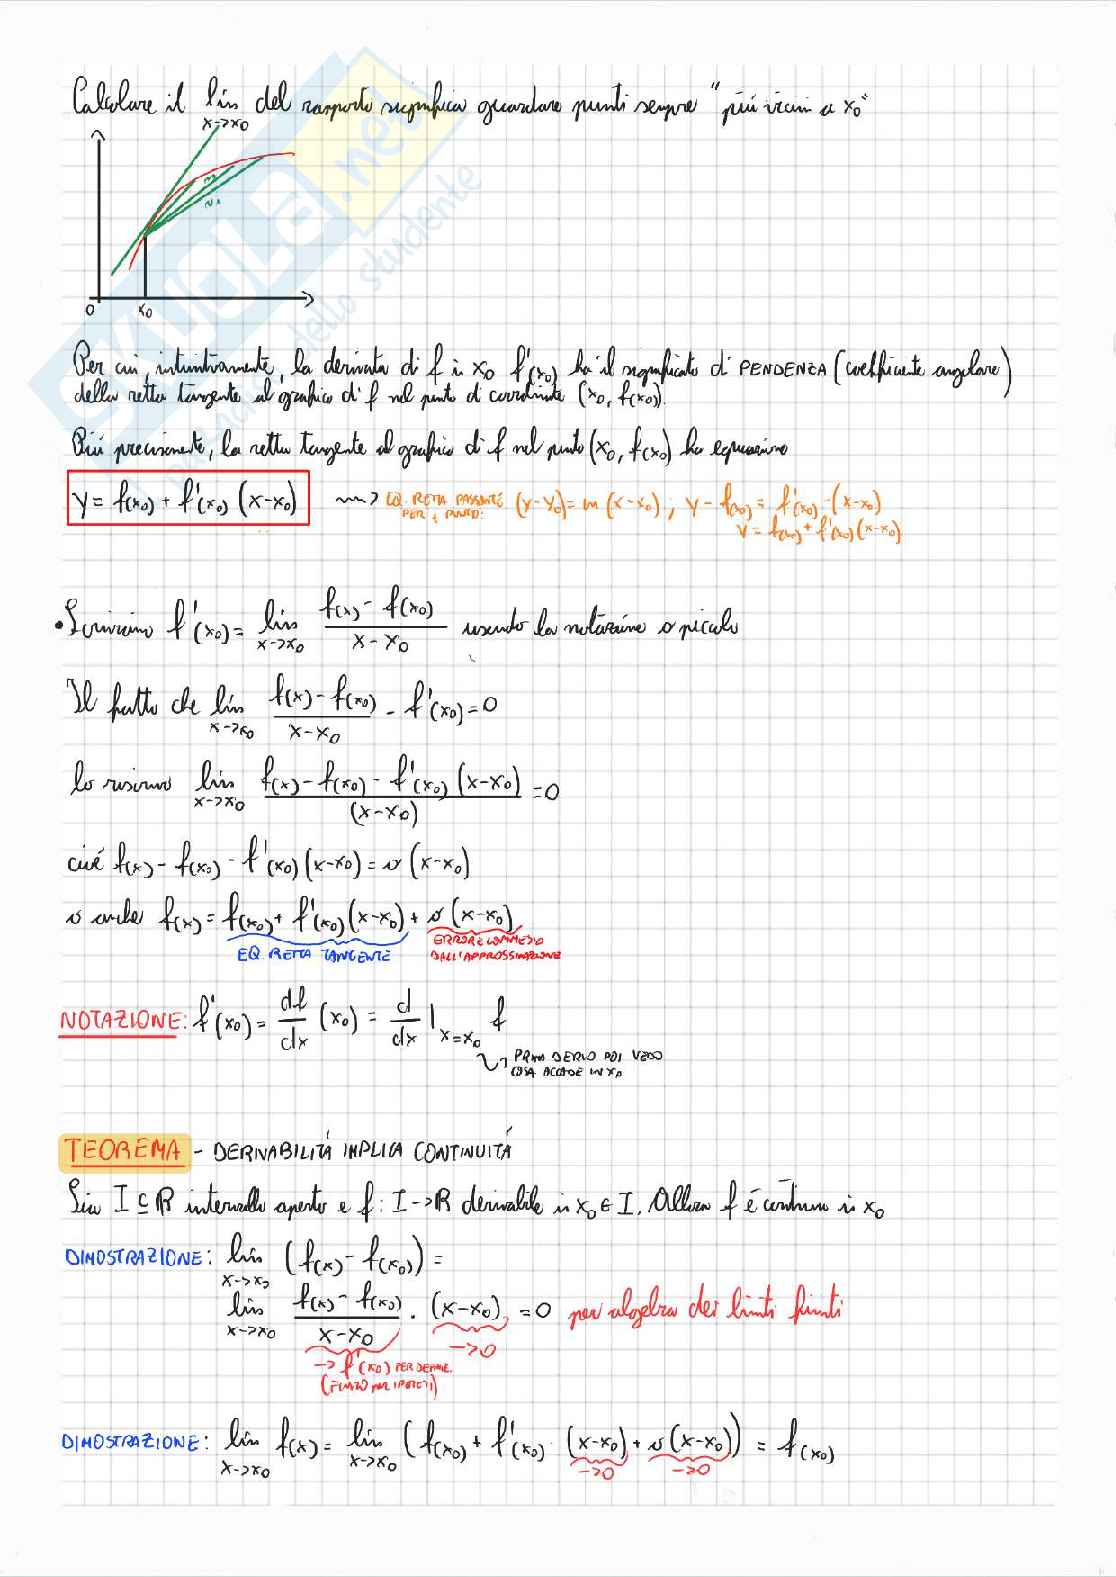 Calcolare il lim del rapporto significa guardare punti sempre "più vicini a x₀"
x->x₀
0 x₀
Per cui, intuitivamente, la derivata di f in x₀ f'(x₀) ha il significato di PENDENZA (coefficiente angolare)
della retta tangente al grafico di f nel punto di coordinate (x₀, f(x₀)).
Più precisamente, la retta tangente al grafico di f nel punto (x₀, f(x₀)) ha equazione
y = f(x₀) + f'(x₀) (x-x₀) ~~> EQ. RETTA PASSANTE PER 1 PUNTO: (y-y₀) = m (x-x₀) ; y - f(x₀) = f'(x₀) · (x-x₀)
y = f(x₀) + f'(x₀) (x-x₀)
• Scriviamo f'(x₀) = lim x->x₀ (f(x) - f(x₀)) / (x - x₀) usando la notazione o piccolo
Il fatto che lim x->x₀ (f(x) - f(x₀)) / (x - x₀) - f'(x₀) = 0
lo riscrivo lim x->x₀ (f(x) - f(x₀) - f'(x₀) (x-x₀)) / (x-x₀) = 0
cioé f(x) - f(x₀) - f'(x₀) (x-x₀) = o (x-x₀)
o anche f(x) = f(x₀) + f'(x₀) (x-x₀) + o (x-x₀)
EQ. RETTA TANGENTE ERRORE COMMESSO
DALL'APPROSSIMAZIONE
NOTAZIONE: f'(x₀) = df/dx (x₀) = d/dx |x=x₀ f
PRIMA DERIVO POI VEDO
COSA ACCADE IN x₀
TEOREMA - DERIVABILITÁ IMPLICA CONTINUITÁ
Sia I ⊆ ℝ intervallo aperto e f: I -> ℝ derivabile in x₀ ∈ I. Allora f é continua in x₀
DIMOSTRAZIONE: lim x->x₀ (f(x) - f(x₀)) =
lim x->x₀ (f(x) - f(x₀)) / (x - x₀) · (x-x₀) = 0 per algebra dei limiti finiti
->0
-> f'(x₀) PER DEFINIZ.
(FINITO PER IPOTESI)
DIMOSTRAZIONE: lim x->x₀ f(x) = lim x->x₀ (f(x₀) + f'(x₀) · (x-x₀) + o (x-x₀)) = f(x₀)
->0 ->0
SKUOLA.net
dello studente